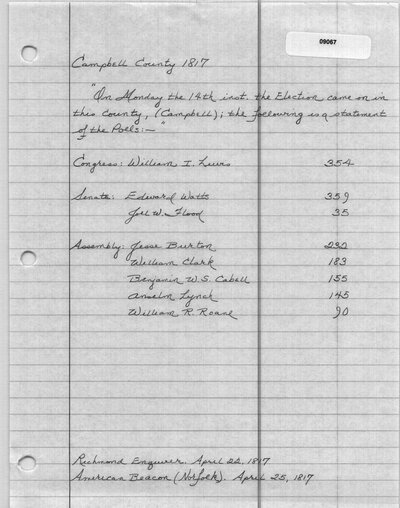 09067
Campbell County 1817
"On Monday the 14th inst. the Election came on in
this County, (Campbell); the following is a statement
of the Polls:— "
Congress: William I. Lewis 354
Senate: Edward Watts 359
Joel W. Flood 35
Assembly: Jesse Burton 232
William Clark 183
Benjamin W.S. Cabell 155
Anselm Lynch 145
William R. Roane 90
Richmond Enquirer. April 22, 1817
American Beacon (Norfolk). April 25, 1817